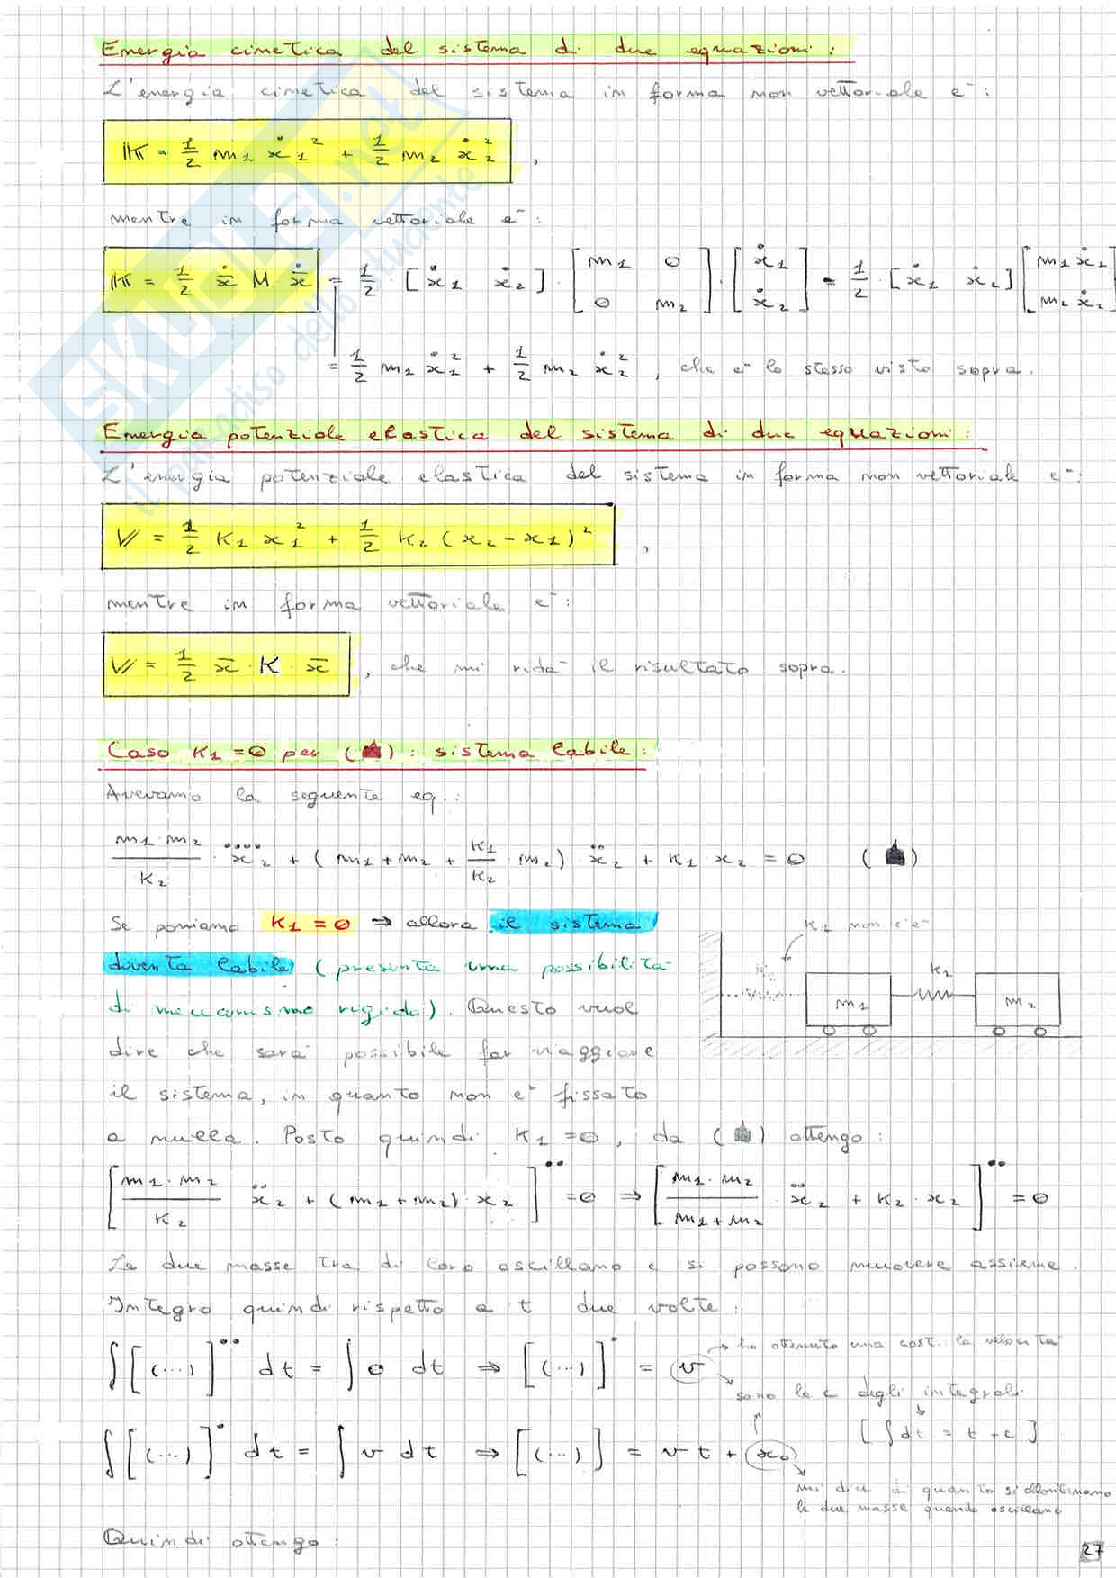 Energia cinetica del sistema di due equazioni:
L'energia cinetica del sistema in forma non vettoriale è:
𝕂 = 1/2 m₁ ẋ₁² + 1/2 m₂ ẋ₂² ,
mentre in forma vettoriale è:
𝕂 = 1/2 ẋ̄ M ẋ̄ = 1/2 · [ẋ₁ ẋ₂] · [m₁ 0; 0 m₂] · [ẋ₁; ẋ₂] = 1/2 · [ẋ₁ ẋ₂] [m₁ẋ₁; m₂ẋ₂]
= 1/2 m₁ ẋ₁² + 1/2 m₂ ẋ₂² , che è lo stesso visto sopra.
Energia potenziale elastica del sistema di due equazioni:
L'energia potenziale elastica del sistema in forma non vettoriale è:
𝕍 = 1/2 K₁ x₁² + 1/2 K₂ (x₂ - x₁)² ,
mentre in forma vettoriale è:
𝕍 = 1/2 x̄ · K · x̄ , che mi ridà il risultato sopra.
Caso K₁ = 0 per (♣): sistema labile:
Avevamo la seguente eq.:
m₁·m₂/K₂ · ẍ̈₂ + (m₁ + m₂ + K₁/K₂ · m₂) · ẍ₂ + K₁ x₂ = 0 (♣)
Se poniamo K₁ = 0 → allora il sistema
diventa labile (presenta una possibilità
di meccanismo rigido). Questo vuol
dire che sarà possibile far viaggiare
il sistema, in quanto non è fissato
a nulla. Posto quindi K₁ = 0, da (♣) ottengo:
K₁ non c'è
K₂
m₁ m₂
[m₁·m₂/K₂ ẍ₂ + (m₁+m₂)·x₂]¨ = 0 ⇒ [m₁·m₂/m₁+m₂ · ẍ₂ + K₂·x₂]¨ = 0
Le due masse tra di loro oscillano e si possono muovere assieme.
Integro quindi rispetto a t due volte:
∫[(...)]¨ dt = ∫ 0 dt ⇒ [(...)]˙ = v → ho ottenuto una cost. la velocità
sono le c degli integrali
[∫dt = t + c]
∫[(...)]˙ dt = ∫ v dt ⇒ [(...)] = vt + x₀
mi dice di quanto si allontanano
le due masse quando oscillano
Quindi ottengo:
27
SKUOLA.net
il paradiso dello studente